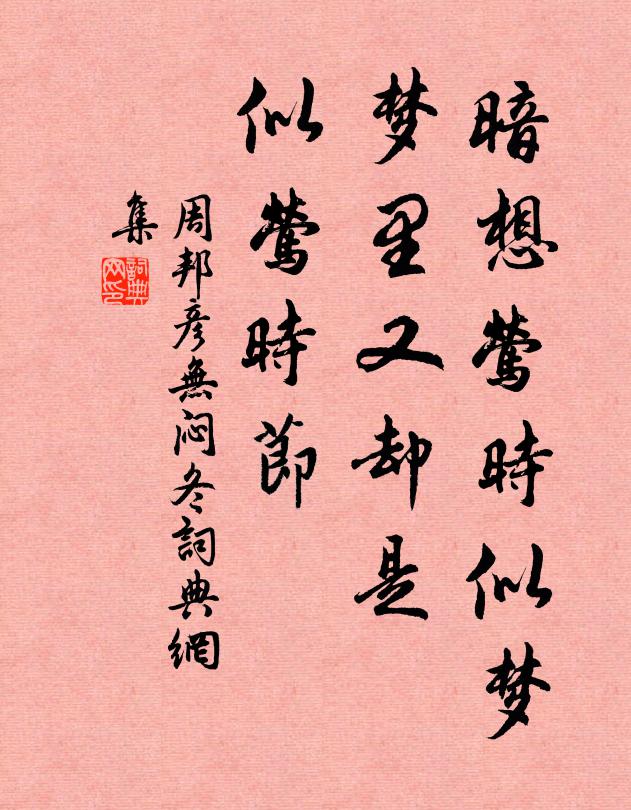 暗想鶯時似梦
梦里又却是
似鶯時節
周邦彦無悶冬詞典網
集
詞典网印